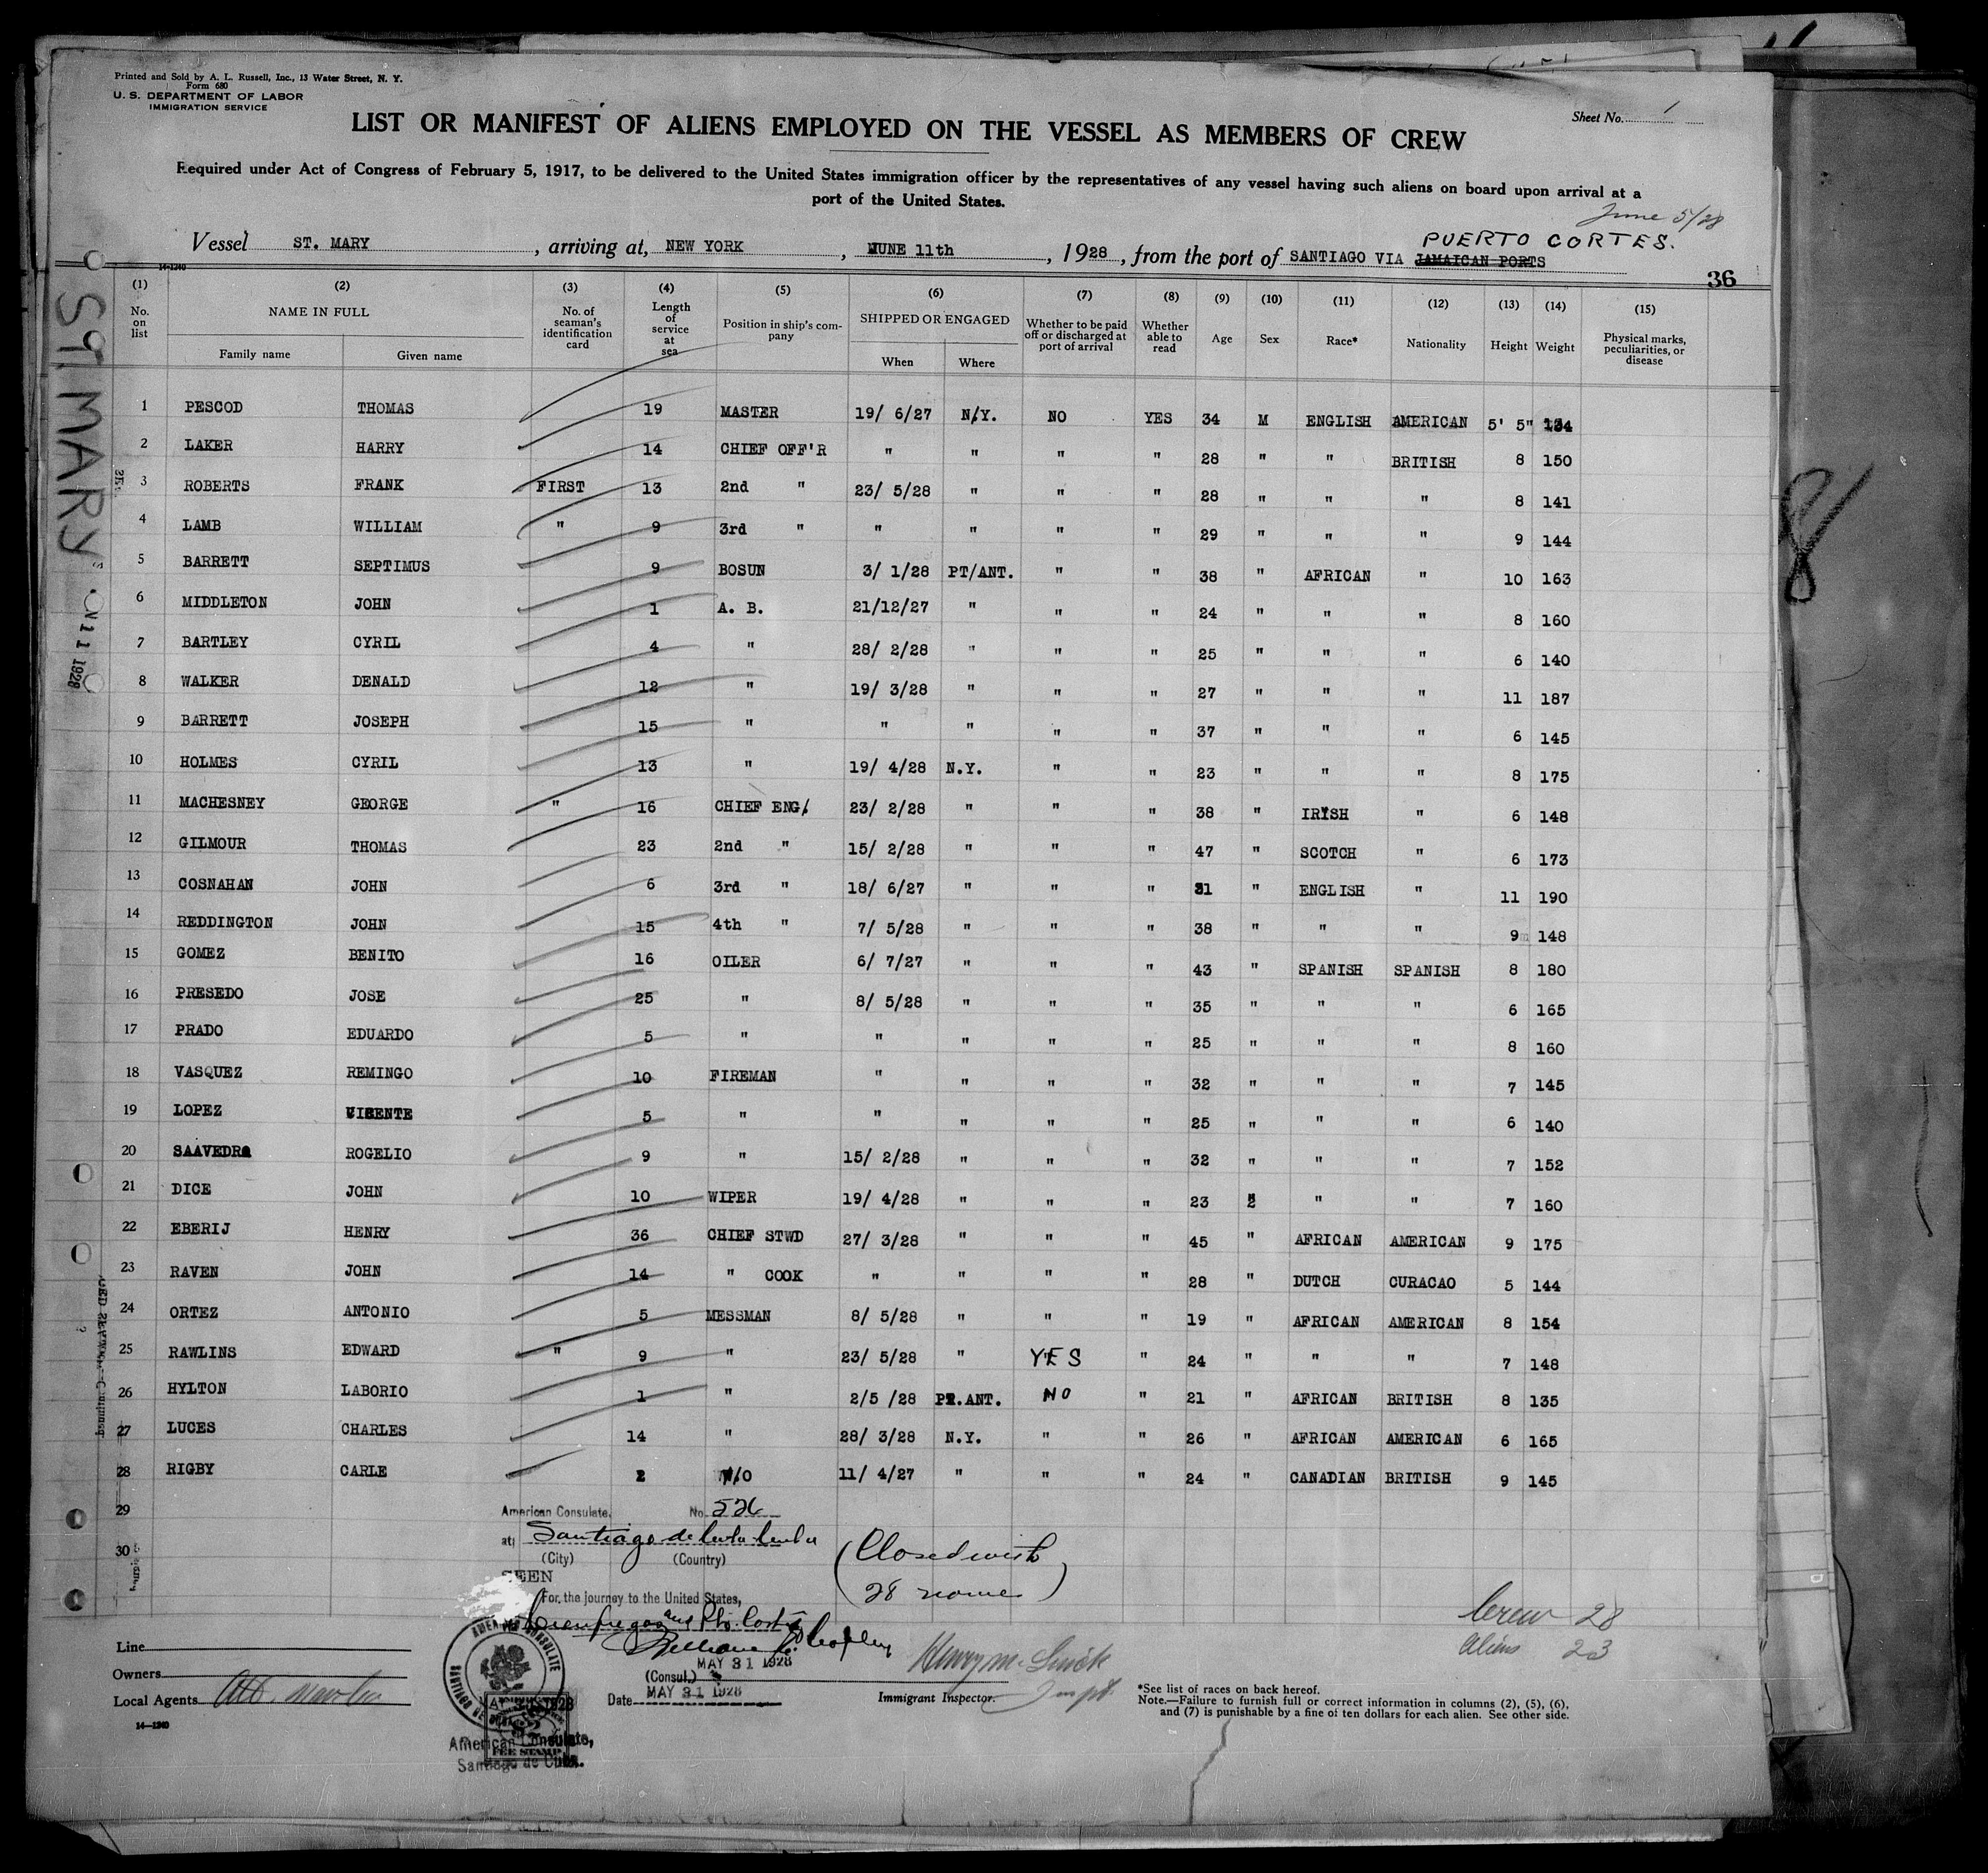 Printed and Sold by A. L. Russell, Inc., 13 Water Street, N. Y.
Form 680
U. S. DEPARTMENT OF LABOR
IMMIGRATION SERVICE
Sheet No. 1
LIST OR MANIFEST OF ALIENS EMPLOYED ON THE VESSEL AS MEMBERS OF CREW
Required under Act of Congress of February 5, 1917, to be delivered to the United States immigration officer by the representatives of any vessel having such aliens on board upon arrival at a
port of the United States.
June 5/28
PUERTO CORTES.
Vessel ST. MARY, arriving at, NEW YORK, JUNE 11th, 1928, from the port of SANTIAGO VIA JAMAICAN PORTS
14-1240
36
(1) (2) (3) (4) (5) (6) (7) (8) (9) (10) (11) (12) (13) (14) (15)
No. on list NAME IN FULL Family name Given name No. of seaman's identification card Length of service at sea Position in ship's company SHIPPED OR ENGAGED When Where Whether to be paid off or discharged at port of arrival Whether able to read Age Sex Race* Nationality Height Weight Physical marks, peculiarities, or disease
1 PESCOD THOMAS 19 MASTER 19/ 6/27 N/Y. NO YES 34 M ENGLISH AMERICAN 5' 5" 134
2 LAKER HARRY 14 CHIEF OFF'R " " " " 28 " " BRITISH 8 150
3 ROBERTS FRANK FIRST 13 2nd " 23/ 5/28 " " " 28 " " " 8 141
4 LAMB WILLIAM " 9 3rd " " " " " 29 " " " 9 144
5 BARRETT SEPTIMUS 9 BOSUN 3/ 1/28 PT/ANT. " " 38 " AFRICAN " 10 163
6 MIDDLETON JOHN 1 A. B. 21/12/27 " " " 24 " " " 8 160
7 BARTLEY CYRIL 4 " 28/ 2/28 " " " 25 " " " 6 140
8 WALKER DENALD 12 " 19/ 3/28 " " " 27 " " " 11 187
9 BARRETT JOSEPH 15 " " " " " 37 " " " 6 145
10 HOLMES CYRIL 13 " 19/ 4/28 N.Y. " " 23 " " " 8 175
11 MACHESNEY GEORGE " 16 CHIEF ENG/ 23/ 2/28 " " " 38 " IRISH " 6 148
12 GILMOUR THOMAS 23 2nd " 15/ 2/28 " " " 47 " SCOTCH " 6 173
13 COSNAHAN JOHN 6 3rd " 18/ 6/27 " " " 31 " ENGLISH " 11 190
14 REDDINGTON JOHN 15 4th " 7/ 5/28 " " " 38 " " " 9 148
15 GOMEZ BENITO 16 OILER 6/ 7/27 " " " 43 " SPANISH SPANISH 8 180
16 PRESEDO JOSE 25 " 8/ 5/28 " " " 35 " " " 6 165
17 PRADO EDUARDO 5 " " " " " 25 " " " 8 160
18 VASQUEZ REMINGO 10 FIREMAN " " " " 32 " " " 7 145
19 LOPEZ VISENTE 5 " " " " " 25 " " " 6 140
20 SAAVEDRA ROGELIO 9 " 15/ 2/28 " " " 32 " " " 7 152
21 DICE JOHN 10 WIPER 19/ 4/28 " " " 23 " " " 7 160
22 EBERIJ HENRY 36 CHIEF STWD 27/ 3/28 " " " 45 " AFRICAN AMERICAN 9 175
23 RAVEN JOHN 14 " COOK " " " " 28 " DUTCH CURACAO 5 144
24 ORTEZ ANTONIO 5 MESSMAN 8/ 5/28 " " " 19 " AFRICAN AMERICAN 8 154
25 RAWLINS EDWARD " 9 " 23/ 5/28 " YES " 24 " " " 7 148
26 HYLTON LABORIO 1 " 2/5 /28 PT.ANT. NO " 21 " AFRICAN BRITISH 8 135
27 LUCES CHARLES 14 " 28/ 3/28 N.Y. " " 26 " AFRICAN AMERICAN 6 165
28 RIGBY CARLE 2 W/O 11/ 4/27 " " " 24 " CANADIAN BRITISH 9 145
29
30
American Consulate, No. 526
at Santiago de Cuba Cuba
(City) (Country)
SEEN
For the journey to the United States,
Cienfuegos and Pto. Cortes
(Closed with
28 names)
MAY 31 1928
(Consul.)
Date MAY 31 1928
Crew 28
Aliens 23
Line
Owners
Local Agents
14—1240
AMERICAN CONSULATE
SANTIAGO DE CUBA
FEE STAMP
American Consulate,
Santiago de Cuba.
Immigrant Inspector.
*See list of races on back hereof.
Note.—Failure to furnish full or correct information in columns (2), (5), (6),
and (7) is punishable by a fine of ten dollars for each alien. See other side.
MARY
11 1928
8